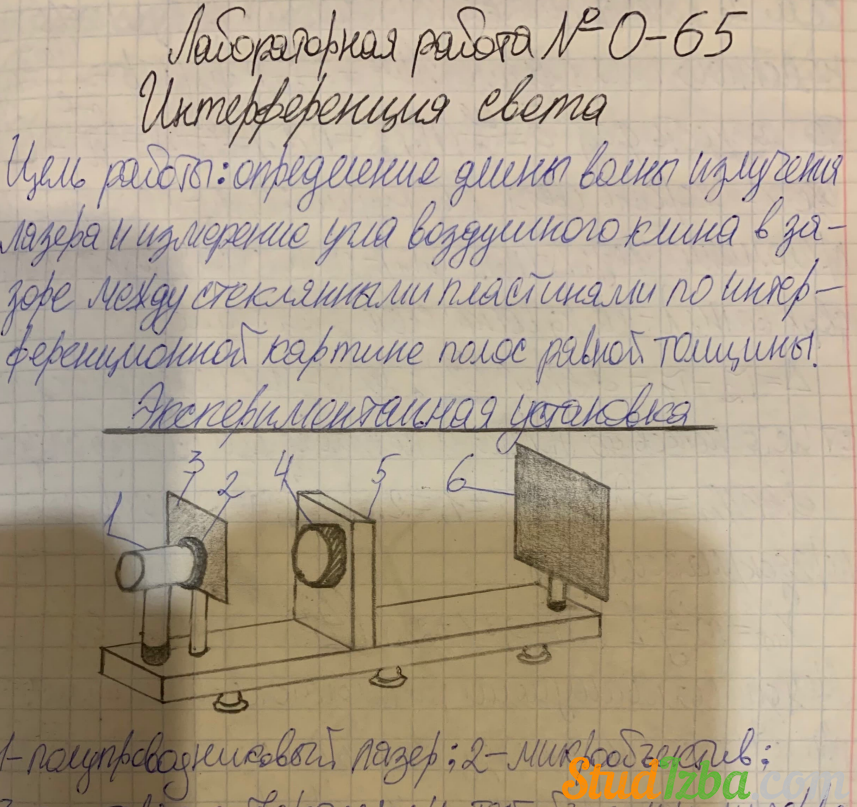 Лабораторная работа № О-65
Интерференция света
Цель работы: определение длины волны излучения
лазера и измерение угла воздушного клина в за-
зоре между стеклянными пластинами по интер-
ференционной картине полос равной толщины.
Экспериментальная установка
1 3 2 4 5 6
1-полупроводниковый лазер; 2-микрообъектив;
StudIzba.com